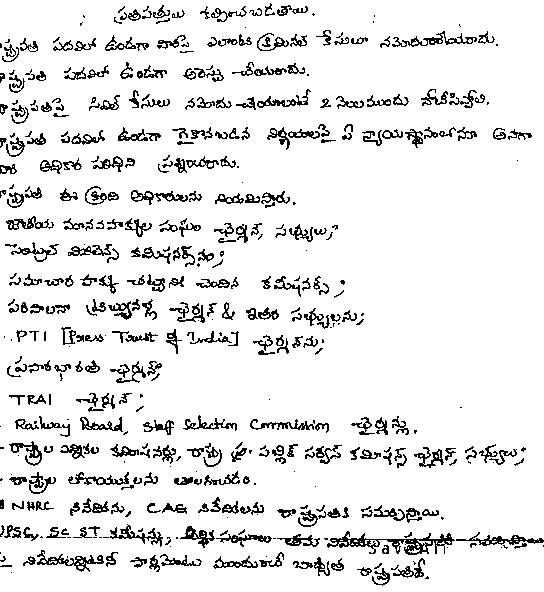 ప్రతిపత్తులు కల్పించబడతాయి.
రాష్ట్రపతి పదవిలో ఉండగా వారిపై ఎలాంటి క్రిమినల్ కేసులు నమోదుచేయరాదు.
రాష్ట్రపతి పదవిలో ఉండగా అరెస్టు చేయరాదు.
రాష్ట్రపతిపై సివిల్ కేసులు నమోదు చేయాలంటే 2 నెలలముందు నోటీసివ్వాలి.
రాష్ట్రపతి పదవిలో ఉండగా గైకొనబడిన నిర్ణయాలపై ఏ న్యాయస్థానంలోనూ అనగా
వారి అధికార పరిధిని ప్రశ్నించరాదు.
రాష్ట్రపతి ఈ క్రింది అధికారులను నియమిస్తారు.
జాతీయ మానవహక్కుల సంఘం ఛైర్మన్, సభ్యులు;
సెంట్రల్ విజిలెన్స్ కమిషనర్స్‌ను;
సమాచార హక్కు చట్టానికి చెందిన కమీషనర్స్;
పరిపాలనా ట్రిబ్యునళ్ల ఛైర్మన్ & ఇతర సభ్యులను;
PTI [Press Trust of India] ఛైర్మన్‌ను;
ప్రసారభారతి ఛైర్మన్;
TRAI ఛైర్మన్;
Railway Board, Staff Selection Commission ఛైర్మన్లు.
రాష్ట్రాల ఎన్నికల కమిషనర్లు, రాష్ట్ర పబ్లిక్ సర్వీస్ కమిషన్స్ ఛైర్మన్, సభ్యులు;
రాష్ట్రాల లోకాయుక్తలను తొలగించడం.
NHRC నివేదికను, CAG నివేదికలను రాష్ట్రపతికి సమర్పిస్తాయి.
UPSC, SC ST కమీషన్లు, ఆర్థిక సంఘాలు తమ నివేదికలు రాష్ట్రపతికి సమర్పిస్తాయి
పై నివేదికలన్నిటినీ పార్లమెంటు ముందుంచే బాధ్యత రాష్ట్రపతిదే.